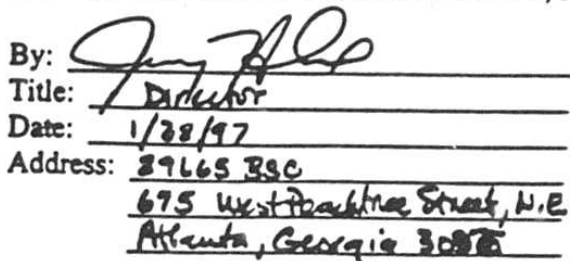 By:
Title: Director
Date: 1/28/97
Address: 29L65 BSC
675 West Peachtree Street, N.E
Atlanta, Georgia